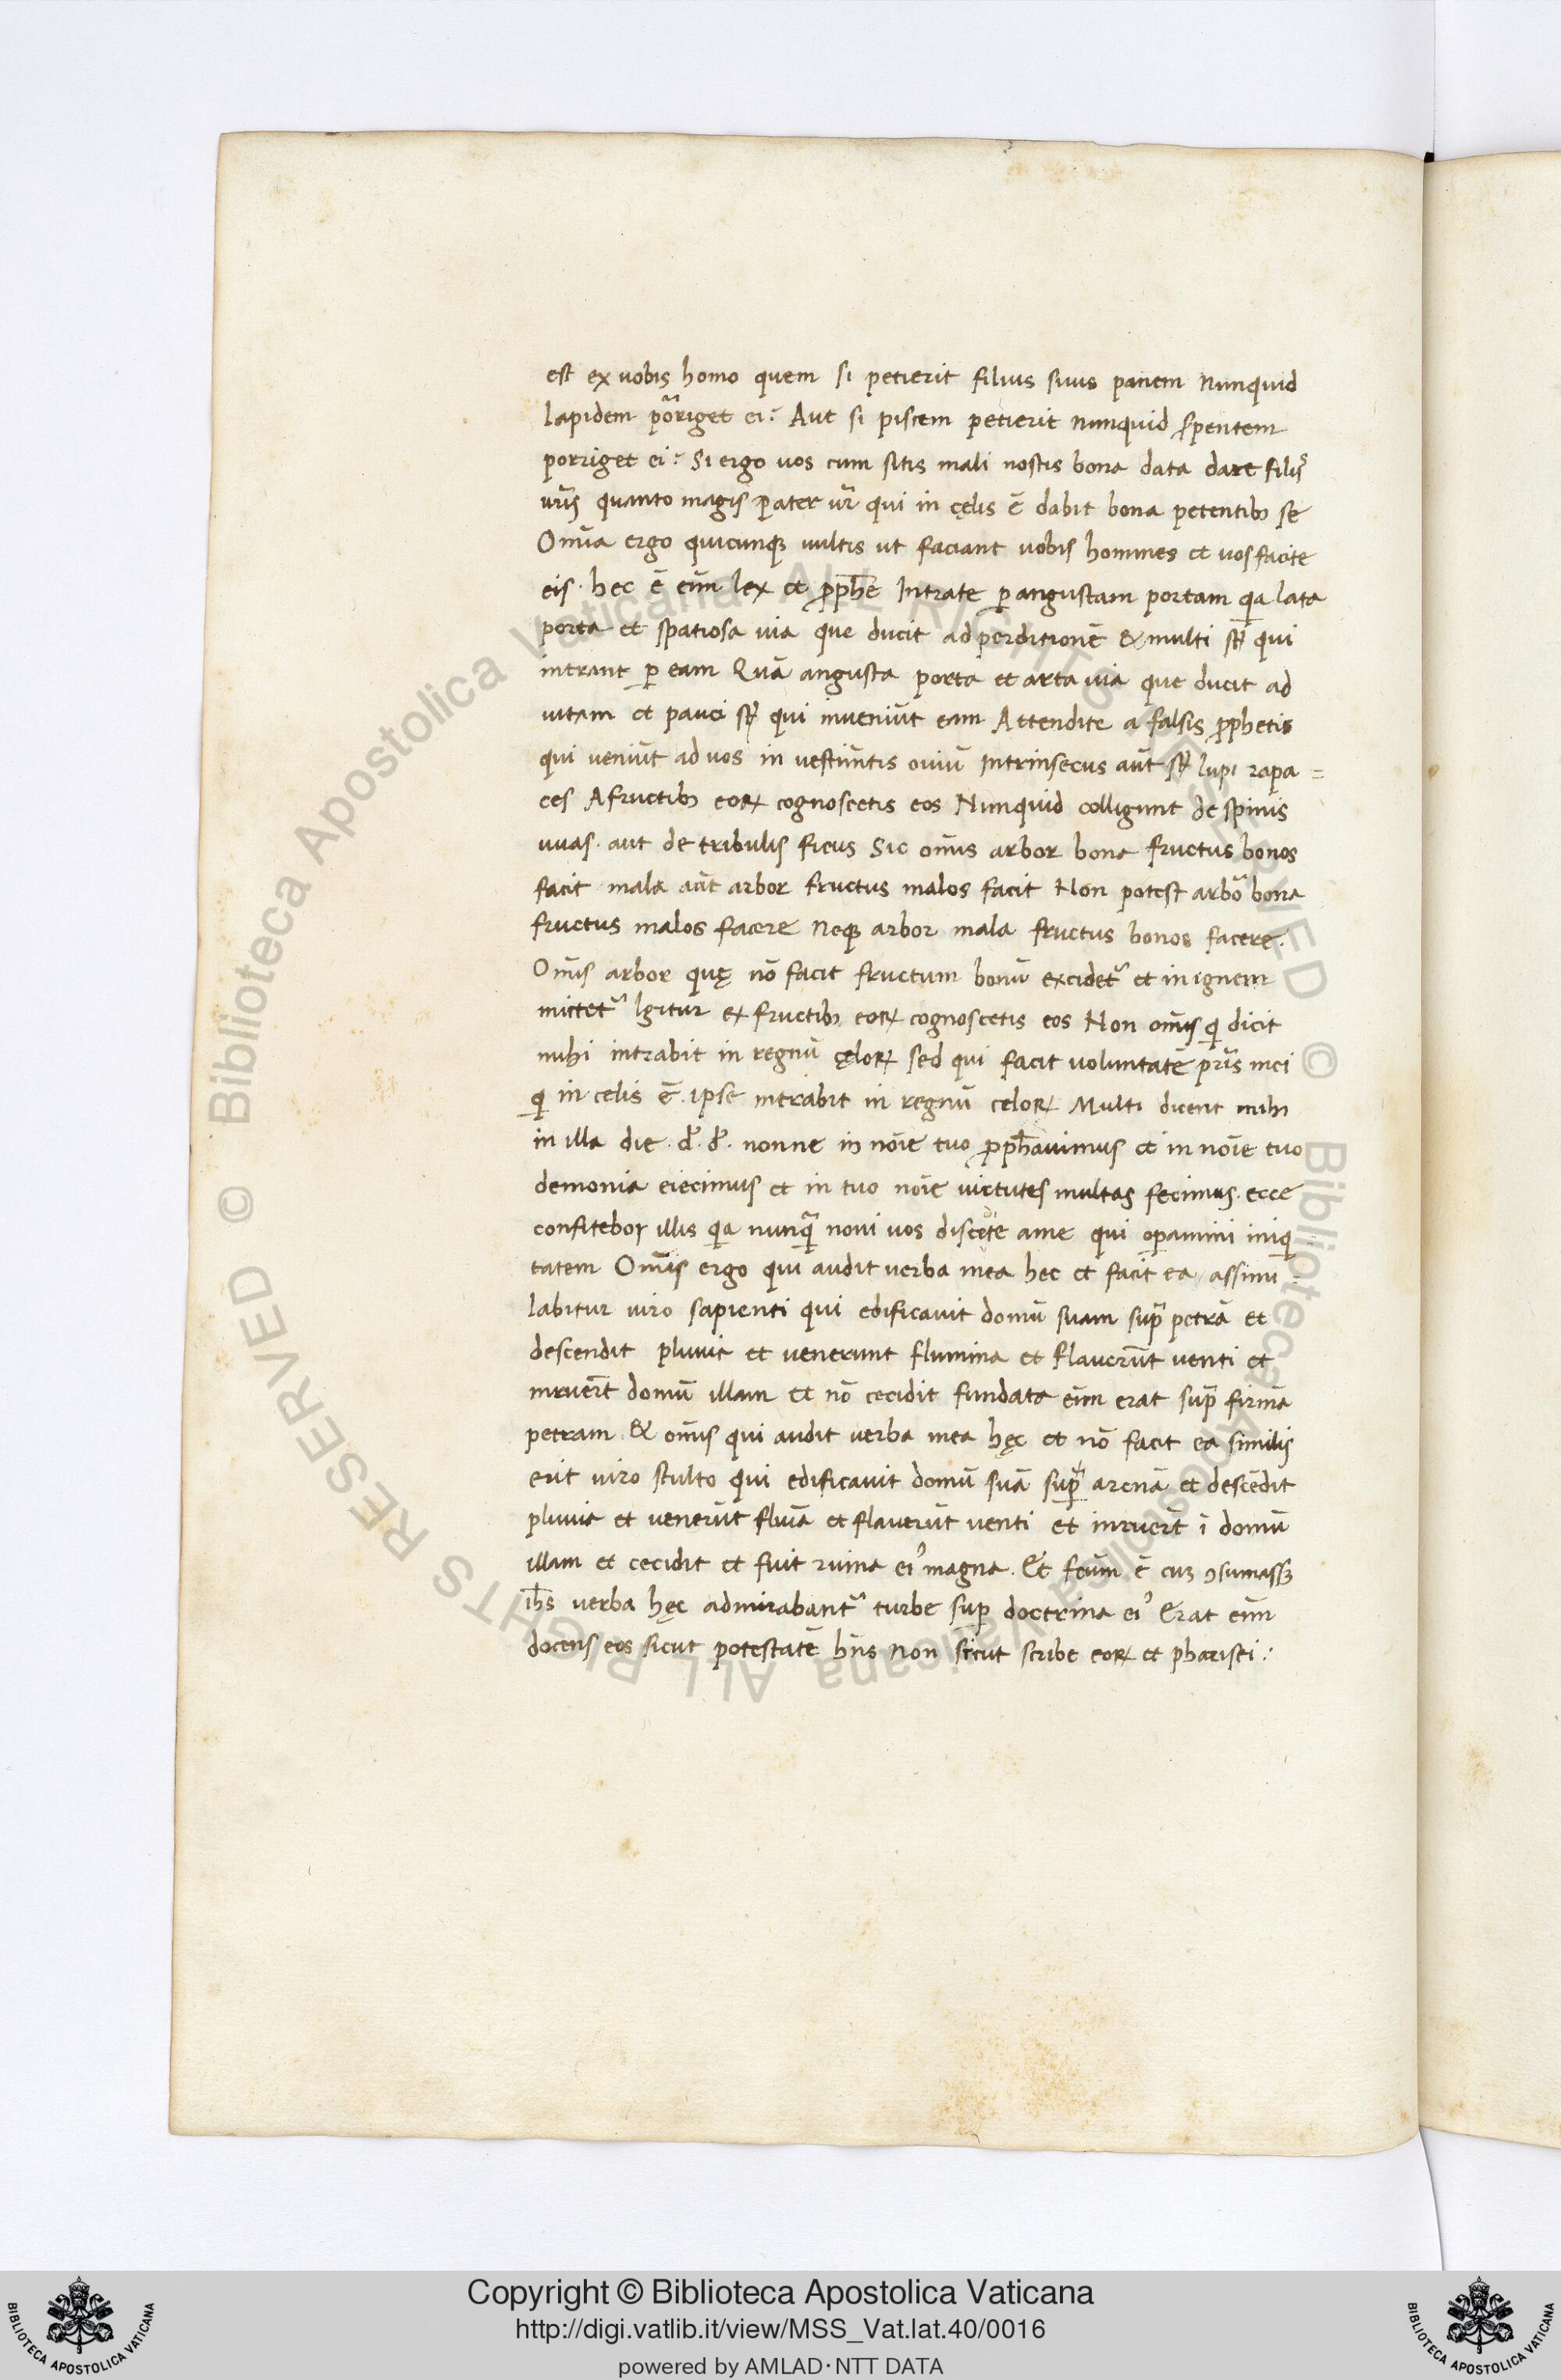 est ex uobis homo quem si petierit filius suus panem nunquid
lapidem porͣriget ei? Aut si piscem petierit nunquid ẜpentem
porriget ei? Si ergo uos cum sitis mali nostis bona data dare filijs
ur̄is quanto magis pater ur̄ qui in cęlis ē dabit bona petentibꝫ se
Om̄ia ergo quicunqꝫ uultis ut faciant uobis homines et uos facite
eis · hec ē eīm lex et ꝓph̄e Intrate ꝑ angustam portam qꝛ̄a lata
porta et spatiosa uia que ducit ad perditionē & multi st̄ qui
intrant ꝑ eam Quā angusta porta et arta uia que ducit ad
uitam et pauci st̄ qui inueniūt eam Attendite a falsis ꝓphetis
qui ueniūt ad uos in uestim̄tis ouiū Intrinsecus aūt st̄ lupi rapa =
ces A fructibꝫ eoꝝ cognoscetis eos Nunquid colligunt de spinis
uuas · aut de tribulis ficus Sic om̄is arbor bona fructus bonos
facit mala aūt arbor fructus malos facit Non potest arboͬ bona
fructus malos facere neqꝫ arbor mala fructus bonos facere.
Om̄is arbor quę nō facit fructum bonū excidetᷣ et in ignem
mittetᷣ Igitur ex fructibꝫ eoꝝ cognoscetis eos Non om̄is qͥ dicit
mihi intrabit in regnū cęloꝝ sed qui facit uoluntatē pr̄is mei
qͥ in celis ē. ipse intrabit in regnū celoꝝ Multi dicent mihi
in illa die · d̄. d̄. nonne in noīe tuo ꝓph̄auimus et in noīe tuo
demonia eiecimus et in tuo noīe uirtutes multas fecimus. ecce
confitebor illis qꝛ̄a nunqͣ noui uos discedite a me qui oꝑamini iniqͥ
tatem Om̄is ergo qui audit uerba mea hec et facit ea / assimi =
labitur uiro sapienti qui edificauit domū suam supͣ petrā et
descendit pluuia et uenerunt flumina et flauerūt uenti et
inruerūt domū illam et nō cecidit fundata eīm erat supͣ firmā
petram · & om̄is qui audit uerba mea hęc et nō facit ea similis
erit uiro stulto qui edificauit domū suā supͣ arenā et descēdit
pluuia et uenerūt flum̄a et flauerūt uenti et inruerūt ī domū
illam et cecidit et fuit ruina eiꝰ magna. Et fcūm ē cuꝫ ꝯsumassꝫ
ih̄s uerba hęc admirabantᷣ turbe suꝑ doctrina eiꝰ Erat eīm
docens eos sicut potestatē hn̄s non sicut scribe eoꝝ et pharisei :·
Copyright © Biblioteca Apostolica Vaticana
http://digi.vatlib.it/view/MSS_Vat.lat.40/0016
powered by AMLAD·NTT DATA
BIBLIOTECA APOSTOLICA VATICANA
BIBLIOTECA APOSTOLICA VATICANA
© Biblioteca Apostolica Vaticana ALL RIGHTS RESERVED © Biblioteca Apostolica Vaticana ALL RIGHTS RESERVED